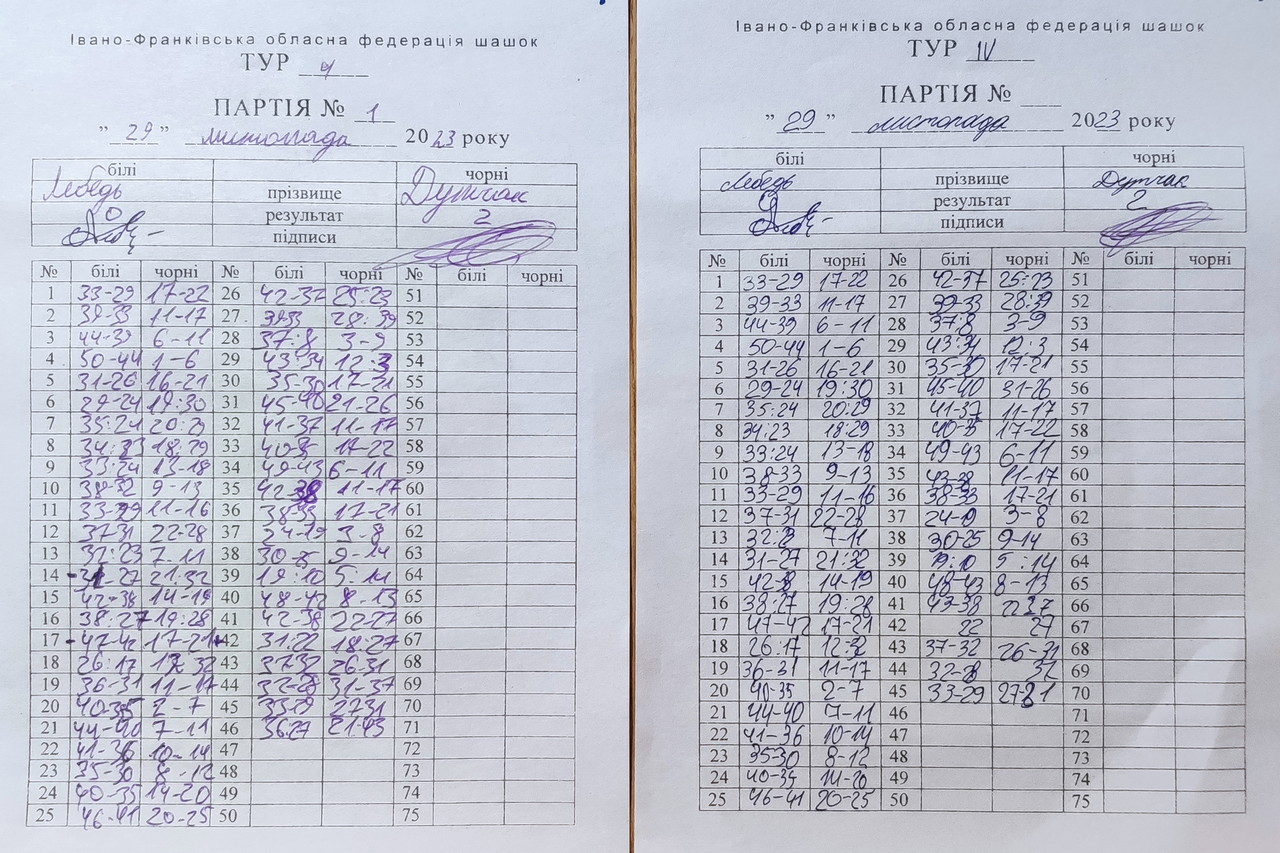 Івано-Франківська обласна федерація шашок
ТУР 4
ПАРТІЯ № 1
" 29 " листопада 2023 року
білі чорні
Лебедь прізвище Дутчак
0 результат 2
підписи
№ білі чорні № білі чорні № білі чорні
1 33-29 17-22 26 42-37 25:23 51
2 39-33 11-17 27 39-33 28:39 52
3 44-39 6-11 28 37:8 3-9 53
4 50-44 1-6 29 43:34 12:3 54
5 31-26 16-21 30 35-30 17-21 55
6 29-24 19:30 31 45-40 21-26 56
7 35:24 20:29 32 41-37 11-17 57
8 34:23 18:29 33 17-22 58
9 33:24 13-18 34 49-43 6-11 59
10 38-32 9-13 35 42-38 11-17 60
11 33-29 11-16 36 38-33 17-21 61
12 37-31 22-28 37 24-19 3-8 62
13 32:23 7-11 38 9-14 63
14 31-27 21:32 39 19:10 5:14 64
15 42-38 14-19 40 48-42 8-13 65
16 38:27 19:28 41 42-38 22-27 66
17 47-42 17-21 42 31:22 18:27 67
18 26:17 12:32 43 37:32 26-31 68
19 36-31 11-17 44 32-28 31-37 69
20 40-35 2-7 45 33-29 27-31 70
21 44-40 7-11 46 36:27 21:43 71
22 41-36 10-14 47 72
23 35-30 8-12 48 73
24 40-35 14-20 49 74
25 46-41 20-25 50 75
Івано-Франківська обласна федерація шашок
ТУР IV
ПАРТІЯ №
" 29 " листопада 2023 року
білі чорні
Лебедь прізвище Дутчак
0 результат 2
підписи
№ білі чорні № білі чорні № білі чорні
1 33-29 17-22 26 42-37 25:23 51
2 39-33 11-17 27 39-33 28:39 52
3 44-39 6-11 28 37:8 3-9 53
4 50-44 1-6 29 43:34 12:3 54
5 31-26 16-21 30 35-30 17-21 55
6 29-24 19:30 31 45-40 31-26 56
7 35:24 20:29 32 41-37 11-17 57
8 34:23 18:29 33 40-35 17-22 58
9 33:24 13-18 34 49-43 6-11 59
10 38-33 9-13 35 43-38 11-17 60
11 33-29 11-16 36 38-33 17-21 61
12 37-31 22-28 37 24-19 3-8 62
13 32:23 7-11 38 30-25 9-14 63
14 31-27 21:32 39 19:10 5:14 64
15 42-38 14-19 40 48-43 8-13 65
16 38:27 19:28 41 43-38 2237 66
17 47-42 17-21 42 22 27 67
18 26:17 12:32 43 37-32 26-31 68
19 36-31 11-17 44 32-28 37 69
20 40-35 2-7 45 33-29 27-31 70
21 44-40 7-11 46 71
22 41-36 10-14 47 72
23 35-30 8-12 48 73
24 40-35 14-20 49 74
25 46-41 20-25 50 75